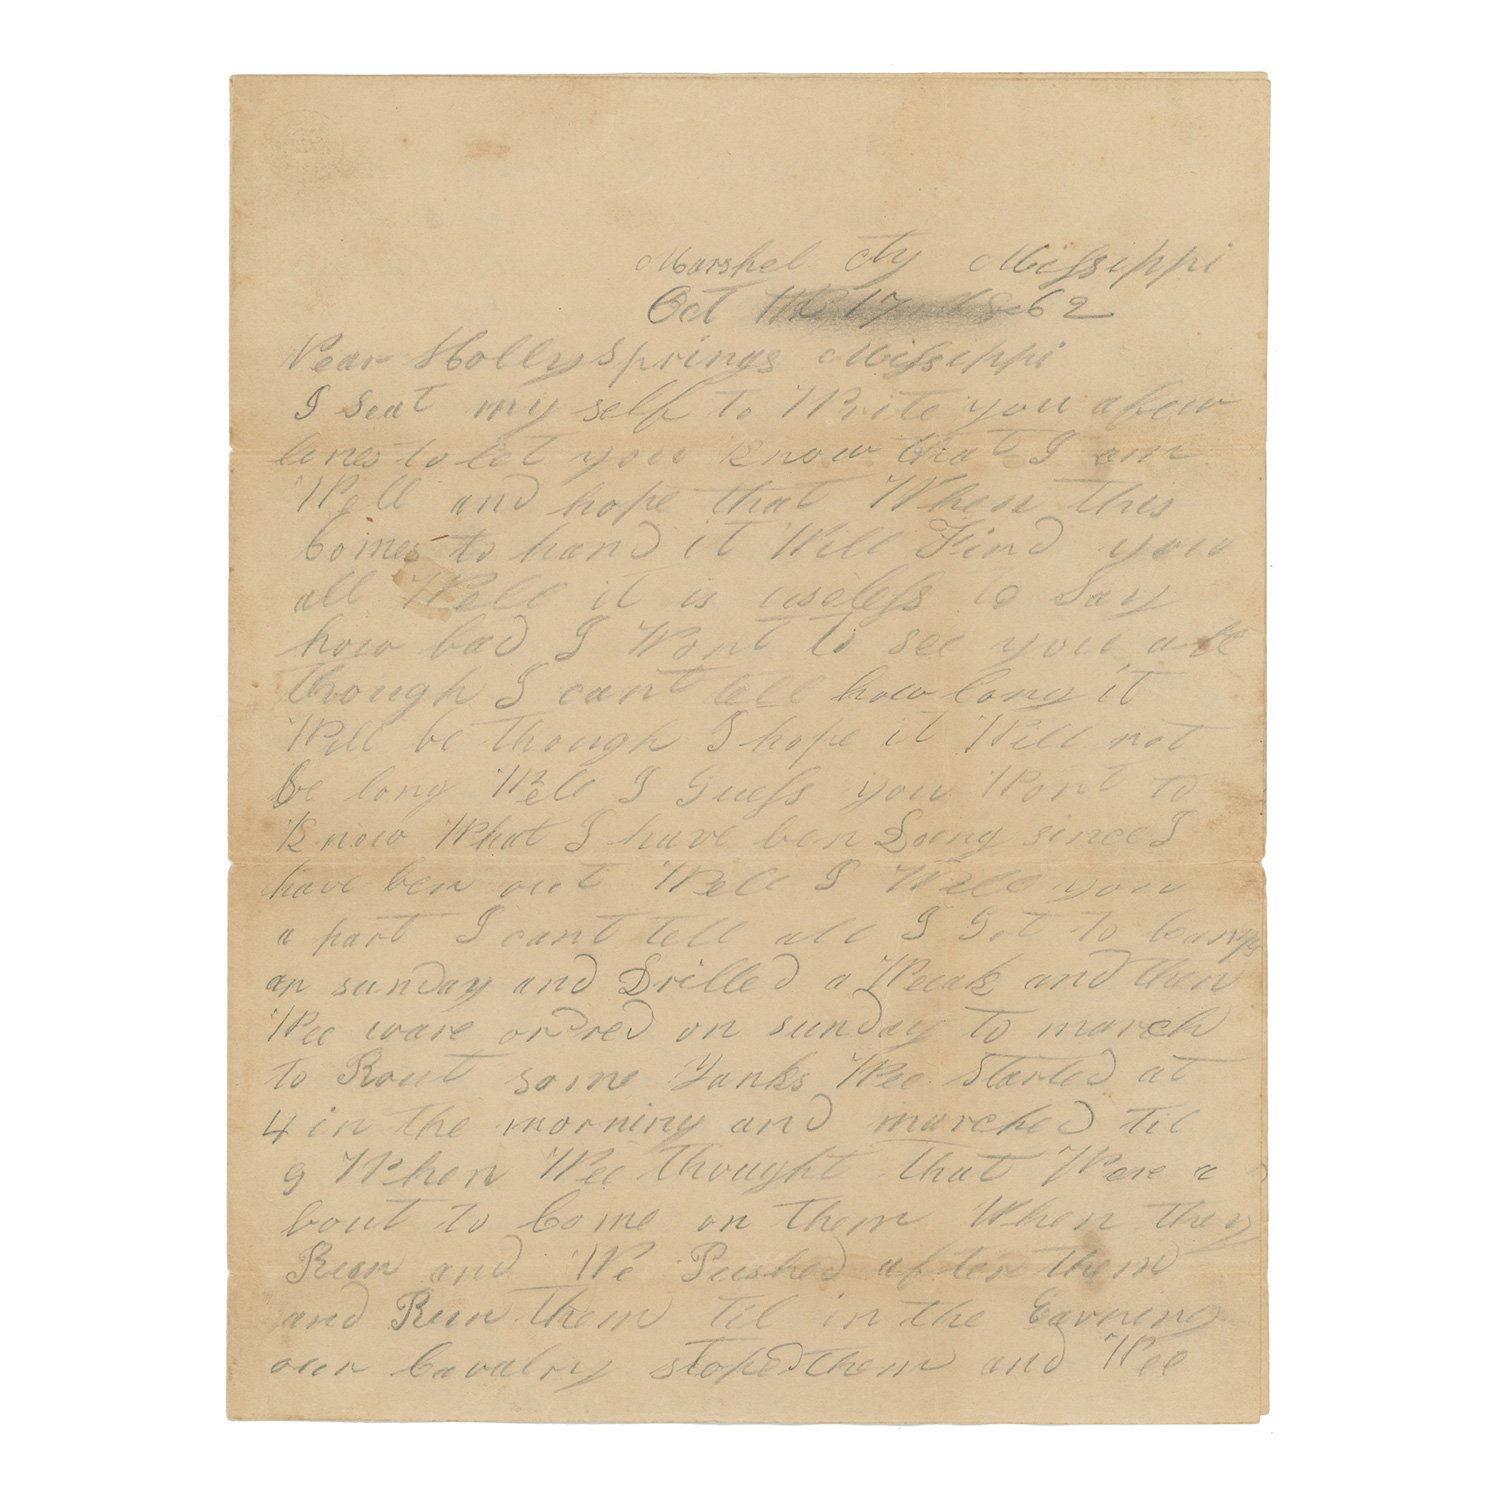 Marshel cty Missippi
Oct the 17 1862
Near Holly Springs Misseppi
I seat my self to Write you afew
lines to let you Know that I am
Well and hope that When this
Comes to hand it Will Find you
all Well it is useless to Say
how bad I Wont to see you all
though I cant tell how long it
Will be though I hope it Will not
be long Well I Guess you Wont to
Know What I have ben Doing since I
have ben out Well I Will you
a part I cant tell all I Got to Camps
on sunday and Drilled a Weak and then
Wee ware ordred on sunday to march
to Rout some Yanks Wee Started at
4 in the morning and marched til
9 When Wee thought that Ware a
bout to Come on them When they
Run and We Pushed after them
and Run them til in the Eavning
our Cavalry stoped them and Wee